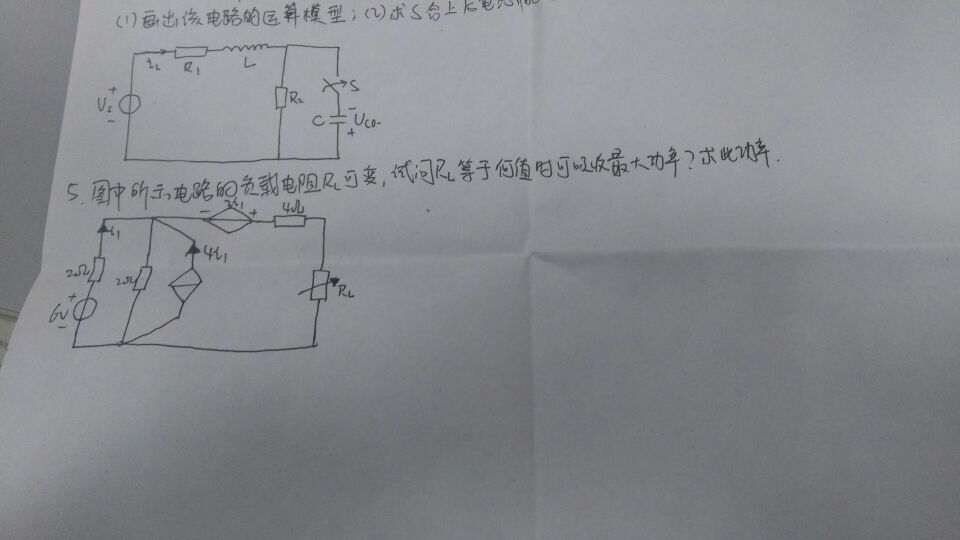 (1)画出该电路的运算模型;(2)求S合上后
i₁
R₁
L
Us
+
-
R₂
S
C
-
Uco-
+
5.图中所示电路的负载电阻RL可变,试问RL等于何值时可吸收最大功率?求此功率.
i₁
-
2i₁
+
4Ω
2Ω
2Ω
4i₁
6V
+
-
RL